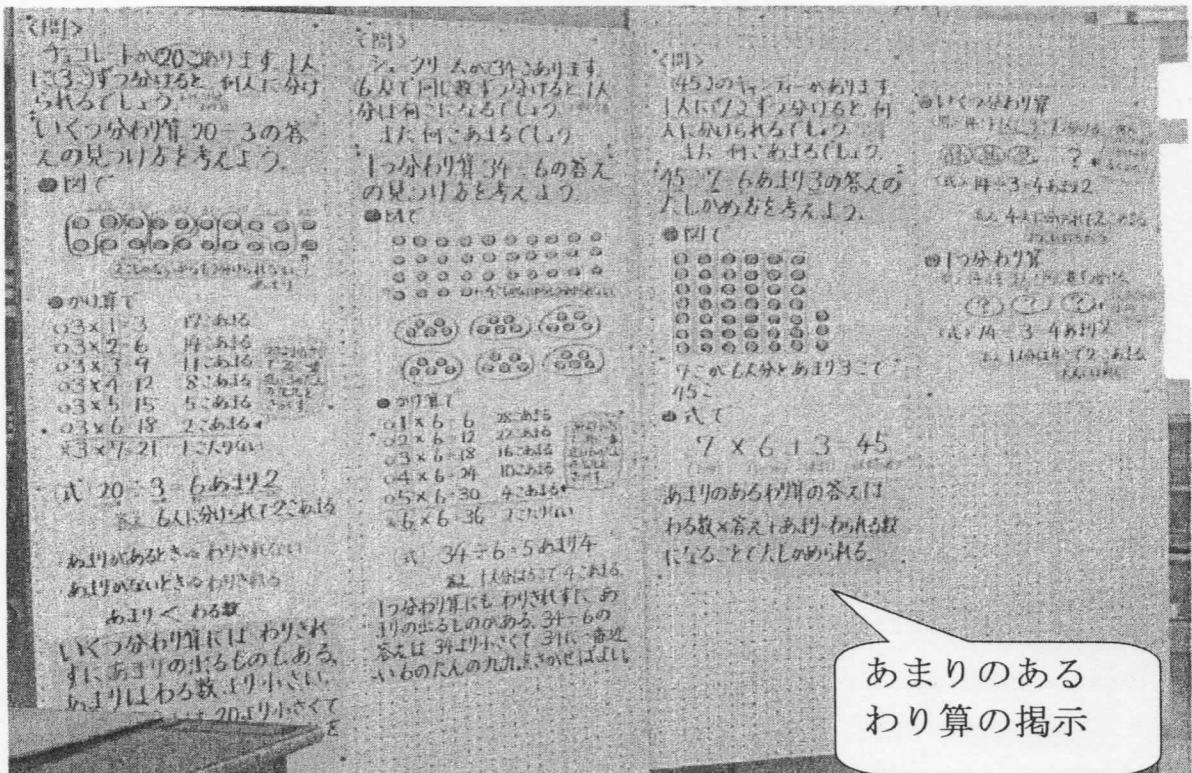 〈問〉
チョコレートが20こあります。1人
に3こずつ分けると、何人に分け
られるでしょう。
いくつ分わり算 20÷3の答
えの見つけ方を考えよう。
図で
かけ算で
3×1=3 17こあまる
3×2=6 14こあまる
3×3=9 11こあまる
3×4=12 8こあまる
3×5=15 5こあまる
3×6=18 2こあまる
×3×7=21 1こたりない
(式) 20÷3=6あまり2
答え 6人に分けられて2こあまる
あまりがあるとき わりきれない
あまりがないとき わりきれる
あまり<わる数
いくつ分わり算には わりきれ
ずに、あまりの出るものもある。
あまりはわる数より小さい。
20より小さくて
〈問〉
シュークリームが34こあります。
6人で同じ数ずつ分けると、1人
分は何こになるでしょう。
また何こあまるでしょう。
1つ分わり算 34÷6の答え
の見つけ方を考えよう。
図で
かけ算で
1×6=6 28こあまる
2×6=12 22こあまる
3×6=18 16こあまる
4×6=24 10こあまる
5×6=30 4こあまる
×6×6=36 2こたりない
(式) 34÷6=5あまり4
答え 1人分は5こで4こあまる
1つ分わり算にも わりきれずに、あ
まりの出るものがある。34÷6の
答えは 34より小さくて 34に一番近
いものを だんの九九でさがせばよい。
〈問〉
45このキャンディーがあります。
1人に7こずつ分けると 何
人に分けられるでしょう。
また 何こあまるでしょう。
45÷7=6あまり3の答えの
たしかめ方を考えよう。
図で
7こが6人分とあまり3こで
45こ
式で
7×6+3=45
あまりのあるわり算の答えは
わる数×答え+あまり=わられる数
になることでたしかめられる。
いくつ分わり算
?
(式) 14÷3=4あまり2
答え 4人に分けられて2こあまる
1つ分わり算
? ? ?
(式) 14÷3=4あまり2
答え 1人分は4こで2こあまる
あまりのある
わり算の掲示